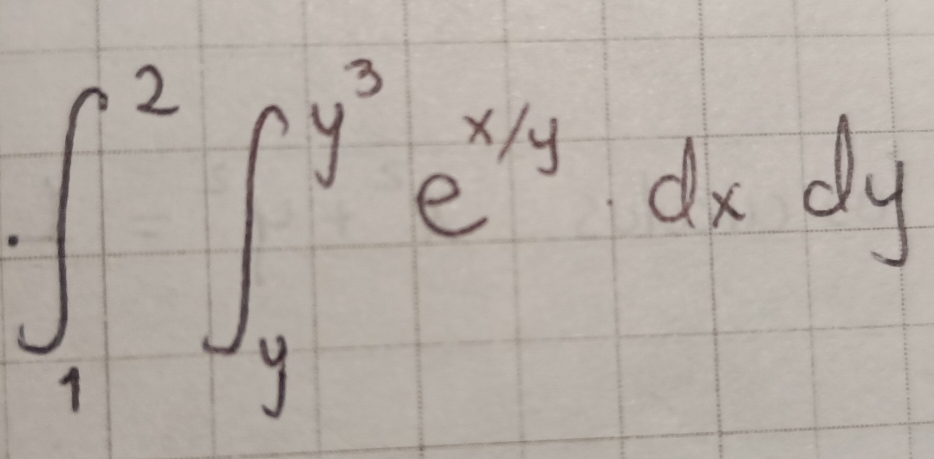 ∫₁² ∫_y^{y³} e^{x/y} · dx dy